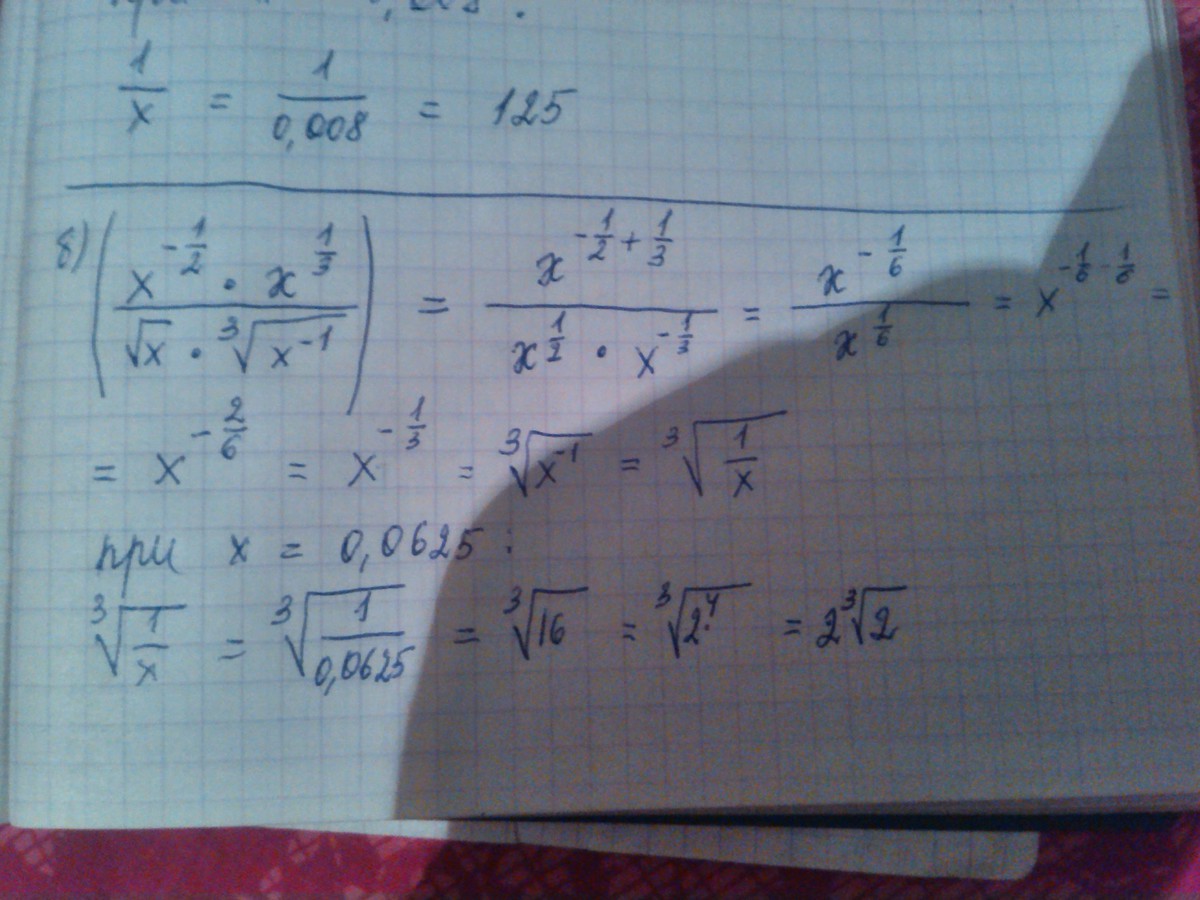 1/x = 1/0,008 = 125
б) (x^(-1/2) · x^(1/3) / (√x · ∛(x^(-1)))) = x^(-1/2 + 1/3) / (x^(1/2) · x^(-1/3)) = x^(-1/6) / x^(1/6) = x^(-1/6 - 1/6) =
= x^(-2/6) = x^(-1/3) = ∛(x^(-1)) = ∛(1/x)
при x = 0,0625 :
∛(1/x) = ∛(1/0,0625) = ∛16 = ∛(2^4) = 2∛2